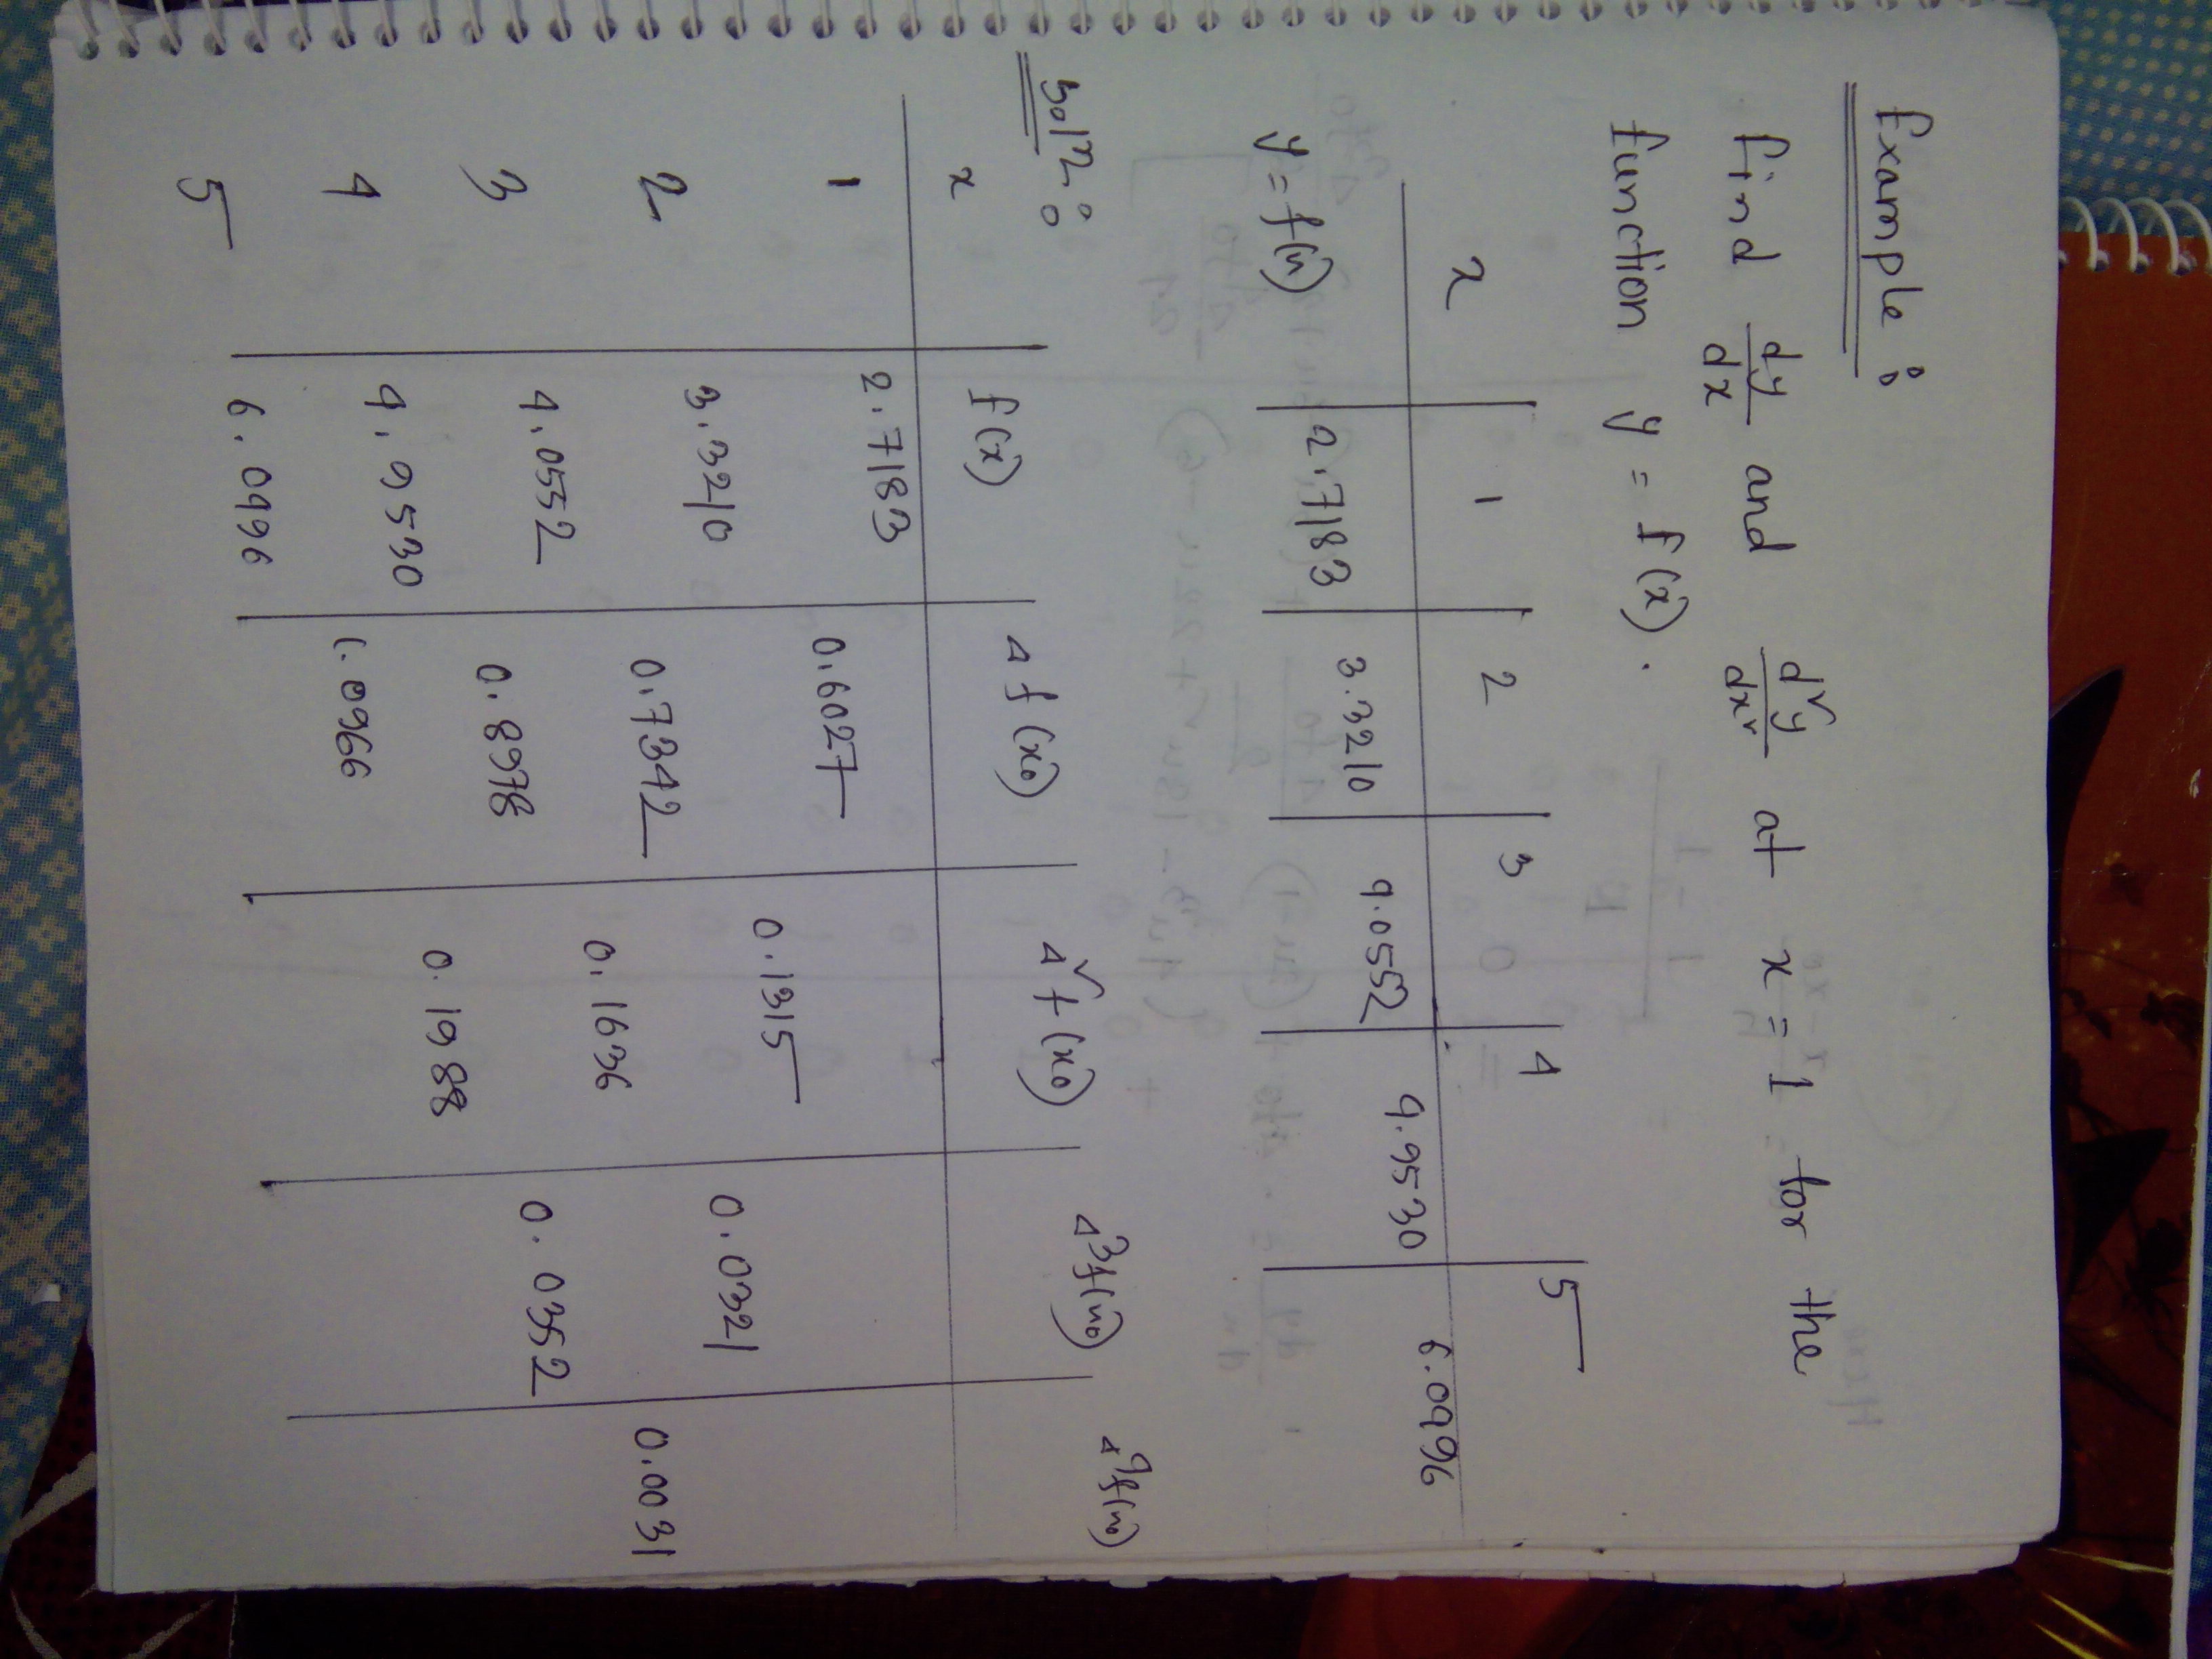 Example :
Find dy/dx and d²y/dx² at x = 1 for the
function y = f(x).
x | 1 | 2 | 3 | 4 | 5
y = f(x) | 2.7183 | 3.3210 | 4.0552 | 4.9530 | 6.0496
Solⁿ :
x | f(x) | Δf(x₀) | Δ²f(x₀) | Δ³f(x₀) | Δ⁴f(x₀)
1 | 2.7183
0.6027
0.1315
2 | 3.3210
0.0321
0.7342
0.0031
0.1636
3 | 4.0552
0.0352
0.8978
0.1988
4 | 4.9530
1.0966
5 | 6.0496